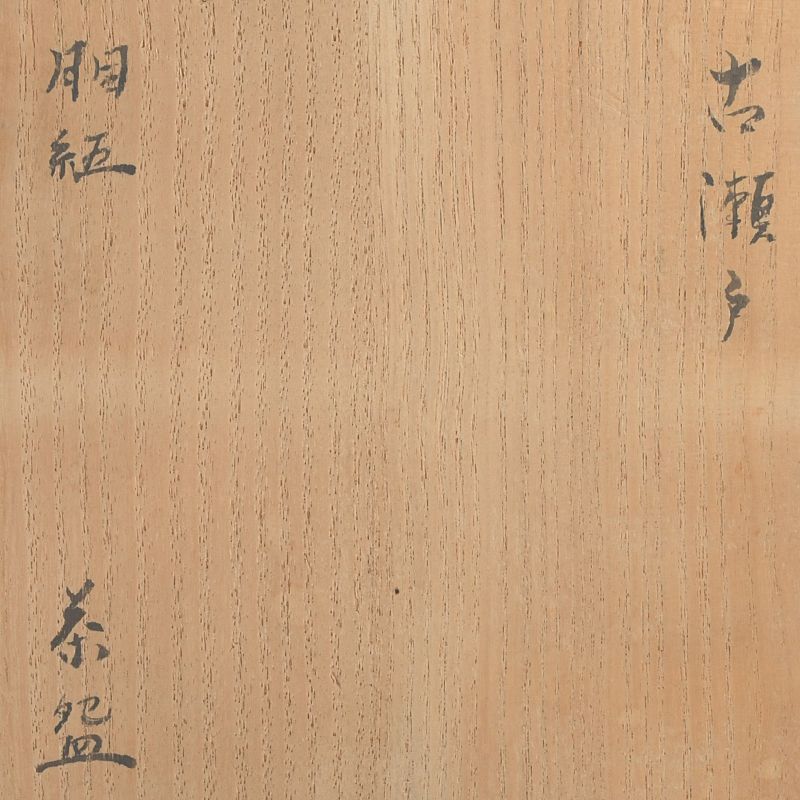 古瀬戸
胴紐 茶盌